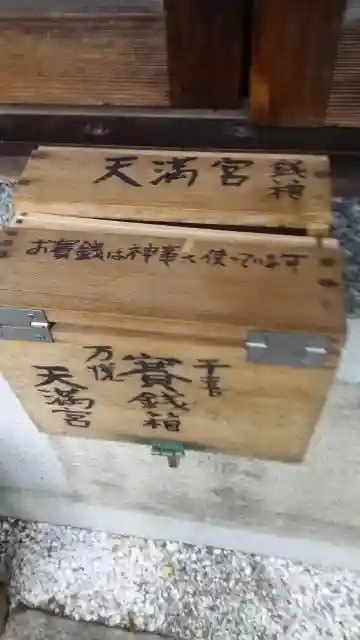 天満宮
銭箱
お賽銭は神事で使っています
千喜
賽銭箱
万悦
天満宮